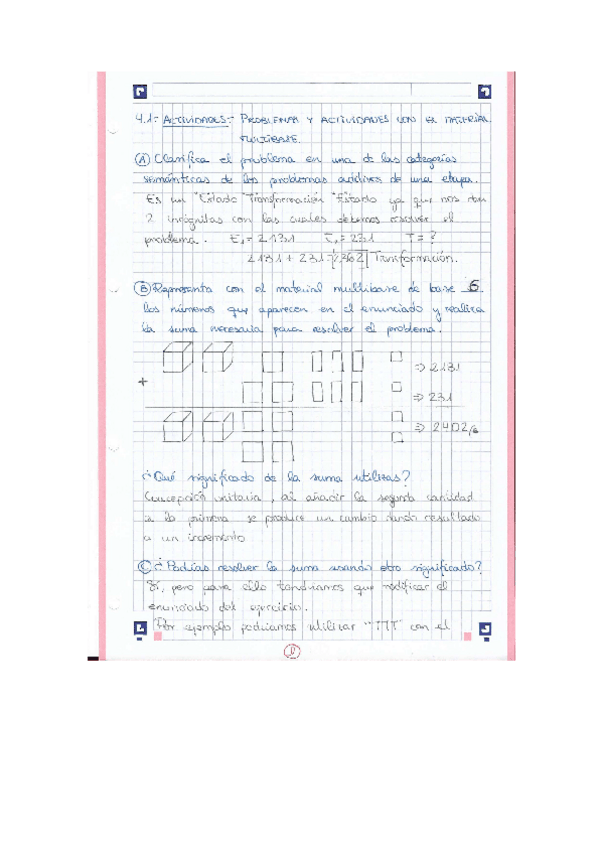 4.1.- ACTIVIDADES.- PROBLEMAS Y ACTIVIDADES CON EL MATERIAL
MULTIBASE.
A Clasifica el problema en una de las categorías
semánticas de los problemas aditivos de una etapa.
Es un "Estado Transformación Estado ya que nos dan
2 incógnitas con las cuales debemos resolver el
problema. E₁ = 2131 = 231 T = ?
2131 + 231 = 2362 Transformación.
B Representa con el material multibase de base 6
los números que aparecen en el enunciado y realiza
la suma necesaria para resolver el problema.
⇒ 2131
+ ⇒ 231
⇒ 2402/6
¿Qué significado de la suma utilizas?
Concepción unitaria, al añadir la segunda cantidad
a la primera se produce un cambio dando resultado
a un incremento
C ¿Podrías resolver la suma usando otro significado?
Sí, pero para ello tendríamos que modificar el
enunciado del ejercicio.
Por ejemplo podríamos utilizar "TTT" con el